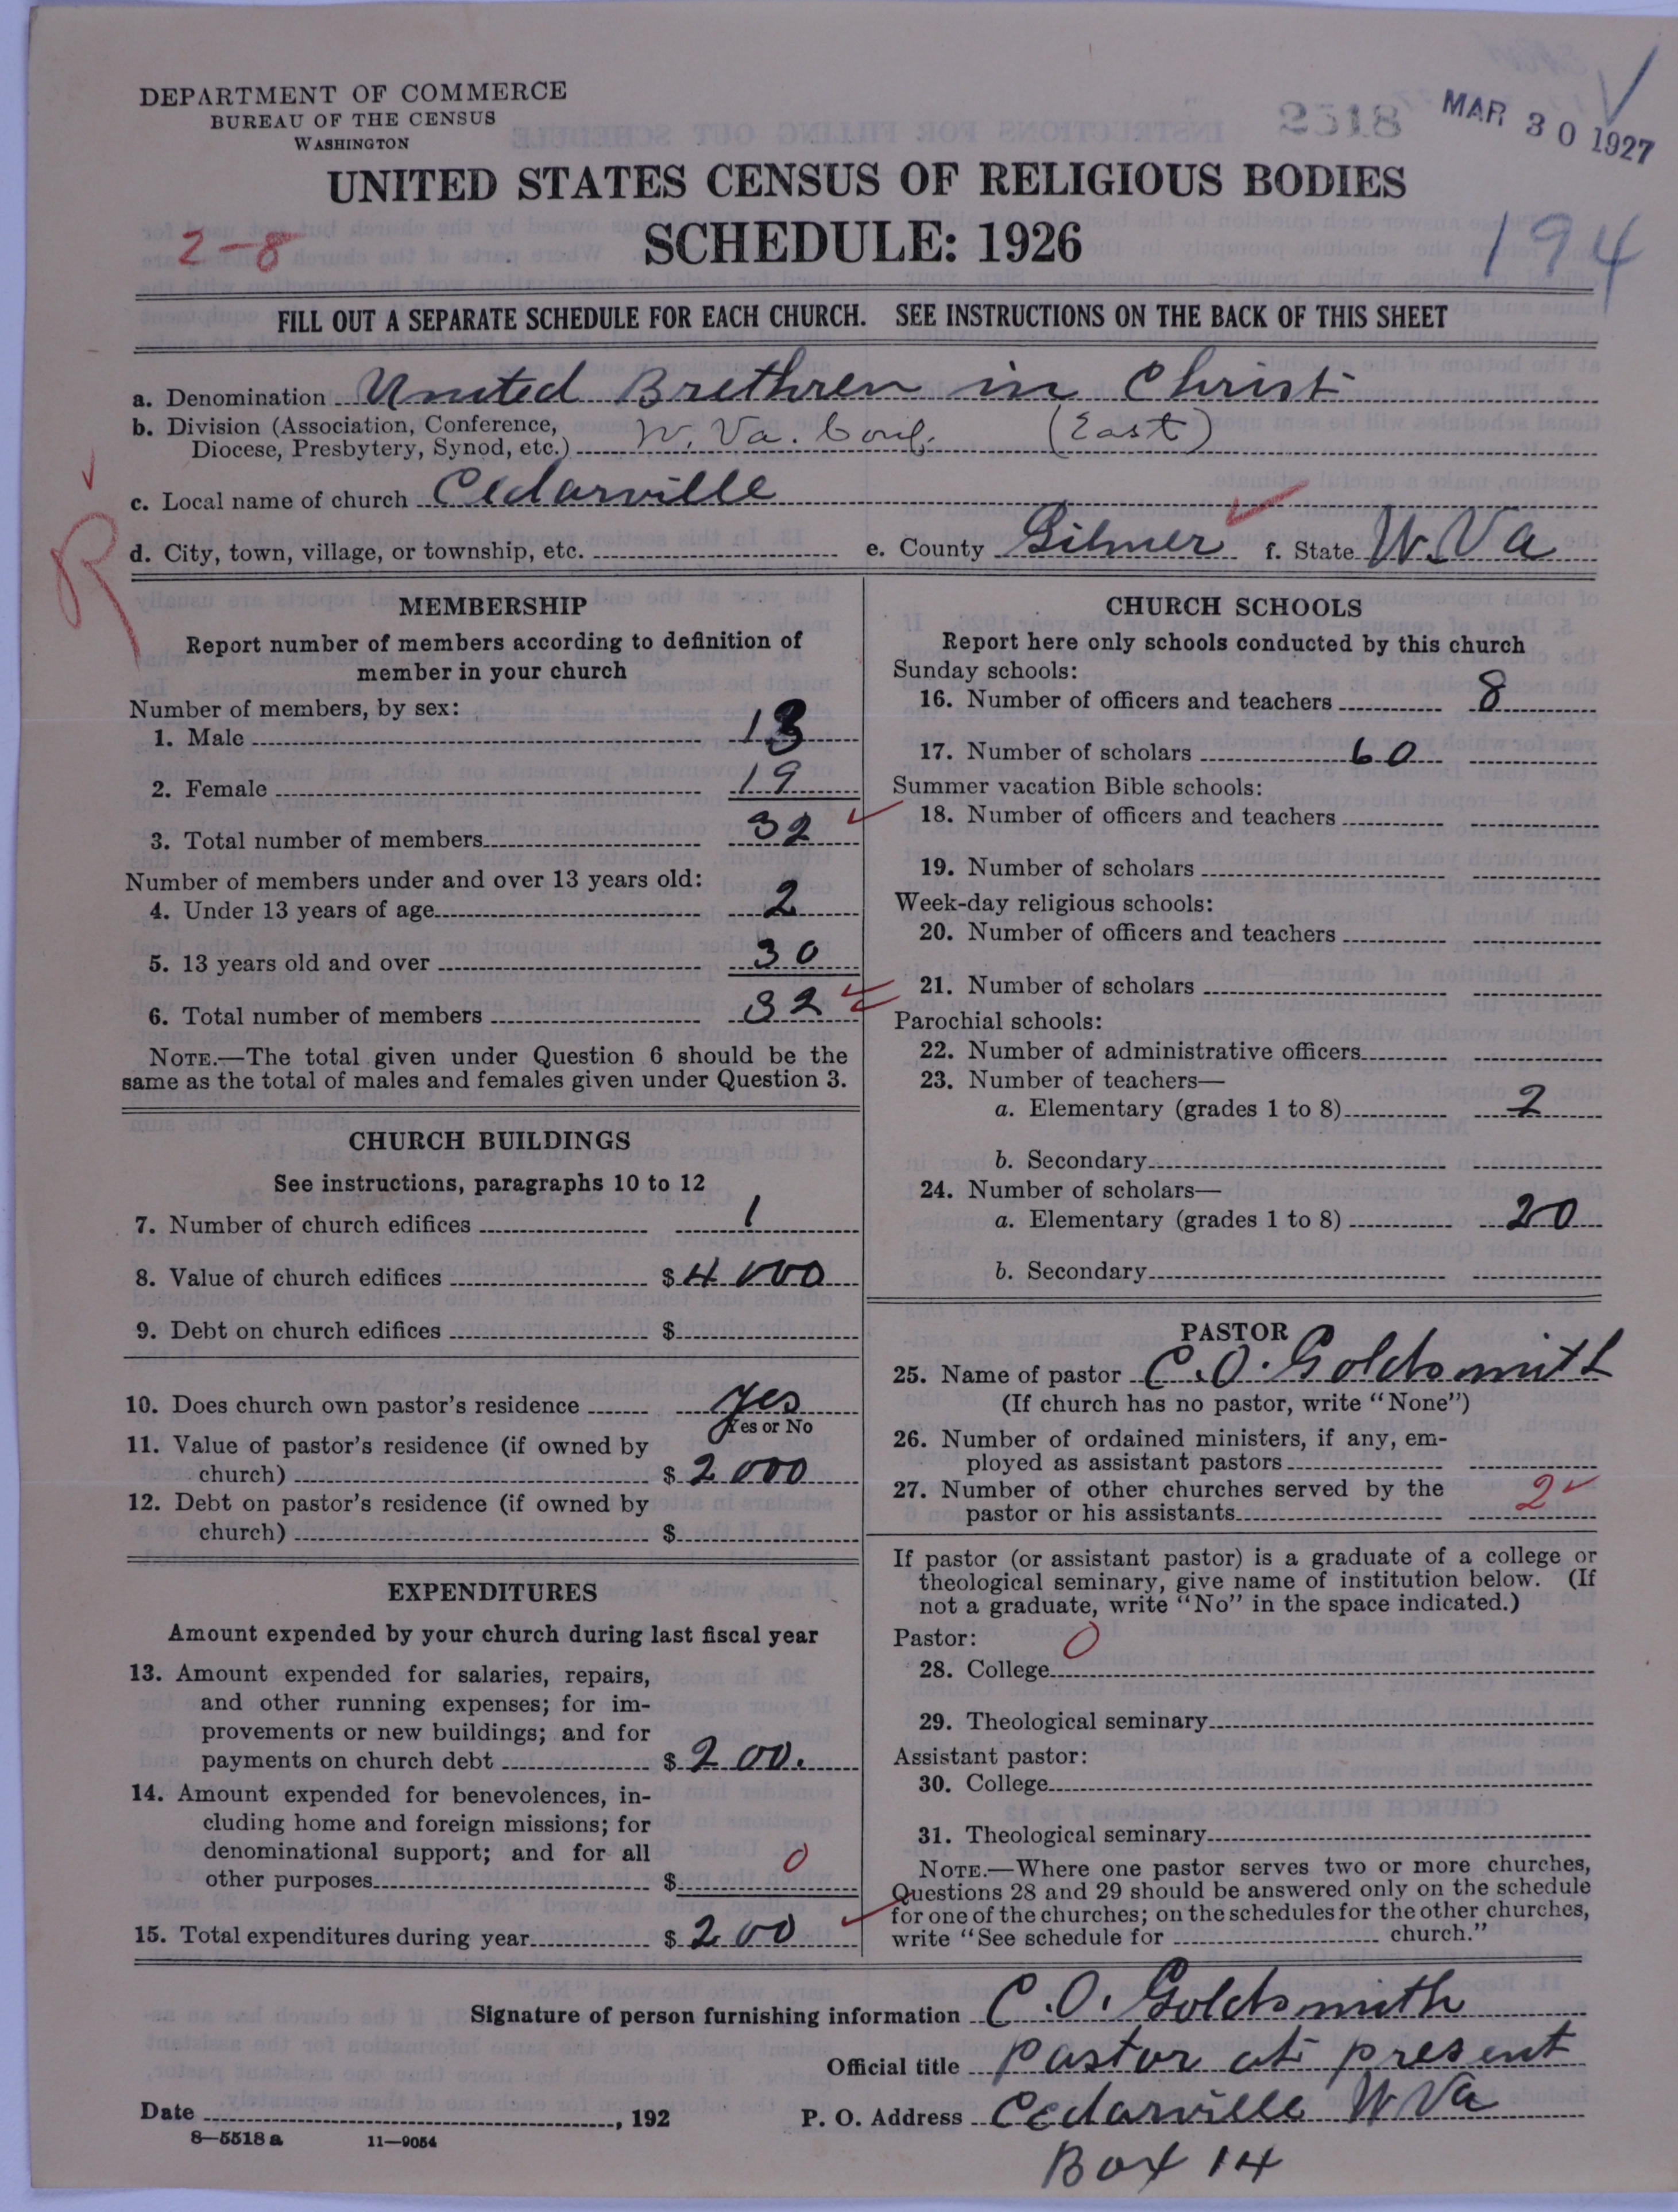 DEPARTMENT OF COMMERCE
BUREAU OF THE CENSUS
WASHINGTON
2518
MAR 30 1927
UNITED STATES CENSUS OF RELIGIOUS BODIES
SCHEDULE: 1926
2-8
194
FILL OUT A SEPARATE SCHEDULE FOR EACH CHURCH. SEE INSTRUCTIONS ON THE BACK OF THIS SHEET
a. Denomination United Brethren in Christ
b. Division (Association, Conference,
Diocese, Presbytery, Synod, etc.) W. Va. Conf. (East)
c. Local name of church Cedarville
R
d. City, town, village, or township, etc. e. County Gilmer f. State W. Va
MEMBERSHIP
Report number of members according to definition of
member in your church
Number of members, by sex:
1. Male 13
2. Female 19
3. Total number of members 32
Number of members under and over 13 years old:
4. Under 13 years of age 2
5. 13 years old and over 30
6. Total number of members 32
NOTE.—The total given under Question 6 should be the
same as the total of males and females given under Question 3.
CHURCH BUILDINGS
See instructions, paragraphs 10 to 12
7. Number of church edifices 1
8. Value of church edifices $ 4000
9. Debt on church edifices $
10. Does church own pastor's residence yes
Yes or No
11. Value of pastor's residence (if owned by
church) $ 2000
12. Debt on pastor's residence (if owned by
church) $
EXPENDITURES
Amount expended by your church during last fiscal year
13. Amount expended for salaries, repairs,
and other running expenses; for im-
provements or new buildings; and for
payments on church debt $ 200.
14. Amount expended for benevolences, in-
cluding home and foreign missions; for
denominational support; and for all
other purposes $ 0
15. Total expenditures during year $ 200
CHURCH SCHOOLS
Report here only schools conducted by this church
Sunday schools:
16. Number of officers and teachers 8
17. Number of scholars 60
Summer vacation Bible schools:
18. Number of officers and teachers
19. Number of scholars
Week-day religious schools:
20. Number of officers and teachers
21. Number of scholars
Parochial schools:
22. Number of administrative officers
23. Number of teachers—
a. Elementary (grades 1 to 8) 2
b. Secondary
24. Number of scholars—
a. Elementary (grades 1 to 8) 20
b. Secondary
PASTOR
25. Name of pastor C. O. Goldsmith
(If church has no pastor, write "None")
26. Number of ordained ministers, if any, em-
ployed as assistant pastors
27. Number of other churches served by the
pastor or his assistants 2
If pastor (or assistant pastor) is a graduate of a college or
theological seminary, give name of institution below. (If
not a graduate, write "No" in the space indicated.)
Pastor: 0
28. College
29. Theological seminary
Assistant pastor:
30. College
31. Theological seminary
NOTE.—Where one pastor serves two or more churches,
Questions 28 and 29 should be answered only on the schedule
for one of the churches; on the schedules for the other churches,
write "See schedule for church."
Signature of person furnishing information C. O. Goldsmith
Official title Pastor at present
Date , 192 P. O. Address Cedarville W Va
8—5518 a 11—9054
Box 14